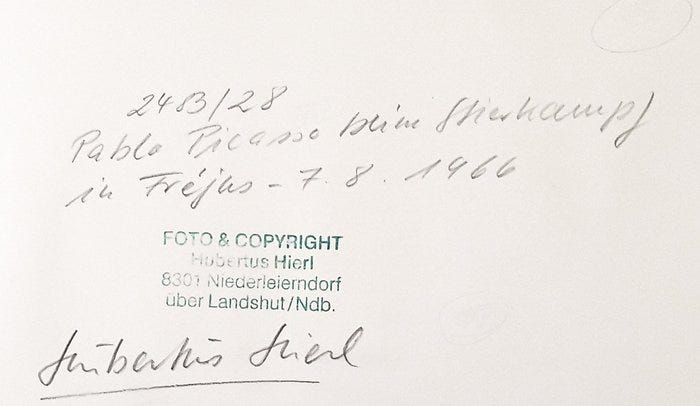 2483/28
Pablo Picasso beim Stierkampf
in Fréjus - 7.8.1966
FOTO & COPYRIGHT
Hubertus Hierl
8301 Niederleierndorf
über Landshut/Ndb.
Hubertus Hierl